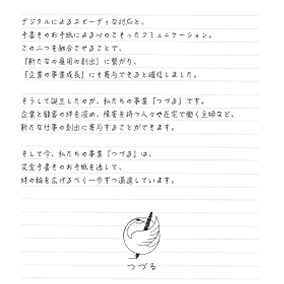 デジタルによるスピーディな対応と、
手書きのお手紙による心のこもったコミュニケーション。
この二つを融合させることで、
『新たな雇用の創出』に繋がり、
『企業の事業成長』にも寄与できると確信しました。
そうして誕生したのが、私たちの事業『つづる』です。
企業と顧客の絆を深め、障害を持つ人々や在宅で働く主婦など、
新たな仕事の創出に寄与することができます。
そして今、私たちの事業『つづる』は、
完全手書きのお手紙を通して、
絆の輪を広げるべく一歩ずつ邁進しています。
つづる